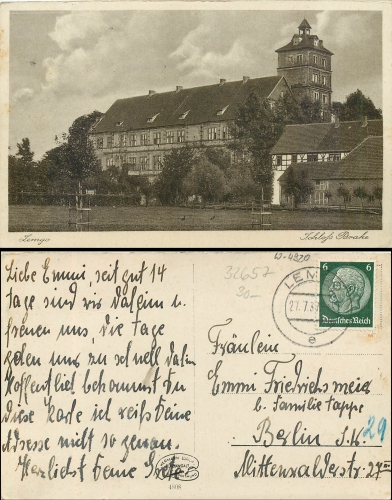 Lemgo
Schloß Brake
W-4920
32657
30-
Liebe Emmi, seit gut 14
Tage sind wir daheim u.
freuen uns, die Tage
gehen uns zu schnell dahin
hoffentlich bekommst Du
diese Karte ich weiß Deine
Adresse nicht so genau.
Herzlichst Deine Grete
LEM
27.7.3
e
6 6
Deutsches Reich
Fräulein
Emmi Friedrichsmeier
b. Familie Tappe
Berlin S.W. 29
Mittenwalderstr. 27